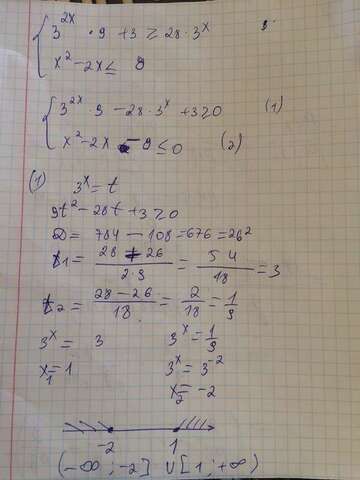 3^{2x} · 9 + 3 ≥ 28 · 3^x
x² - 2x ≤ 8
3^{2x} · 9 - 28 · 3^x + 3 ≥ 0 (1)
x² - 2x - 8 ≤ 0 (2)
(1)
3^x = t
9t² - 28t + 3 ≥ 0
D = 784 - 108 = 676 = 26²
t1 = (28 + 26)/(2 · 9) = 54/18 = 3
t2 = (28 - 26)/18 = 2/18 = 1/9
3^x = 3 3^x = 1/9
x1 = 1 3^x = 3^{-2}
x2 = -2
-2 1
(-∞ ; -2] ∪ [1 ; +∞)